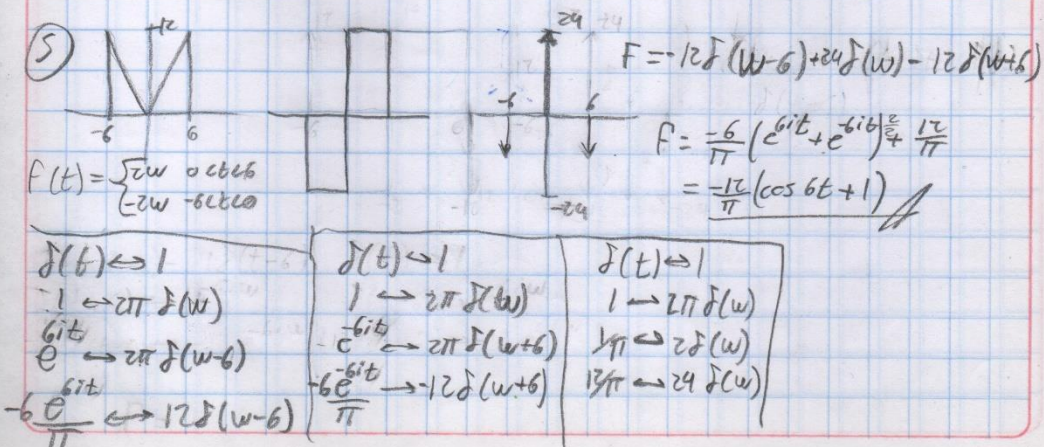 5
12
-6 6
f(t) = { 2w 0<t>6
{ -2w -6<t>0
24
-6 6
-24
F = -12 δ(w-6) + 24 δ(w) - 12 δ(w+6)
F = -6/π (e^6it + e^-6it) 2/2 + 12/π
= -12/π (cos 6t + 1)
δ(t) ↔ 1
1 ↔ 2π δ(w)
e^6it ↔ 2π δ(w-6)
-6 e^6it/π ↔ 12 δ(w-6)
δ(t) ↔ 1
1 ↔ 2π δ(w)
e^-6it ↔ 2π δ(w+6)
-6 e^-6it/π → -12 δ(w+6)
δ(t) ↔ 1
1 ↔ 2π δ(w)
1/π ↔ 2 δ(w)
12/π ↔ 24 δ(w)